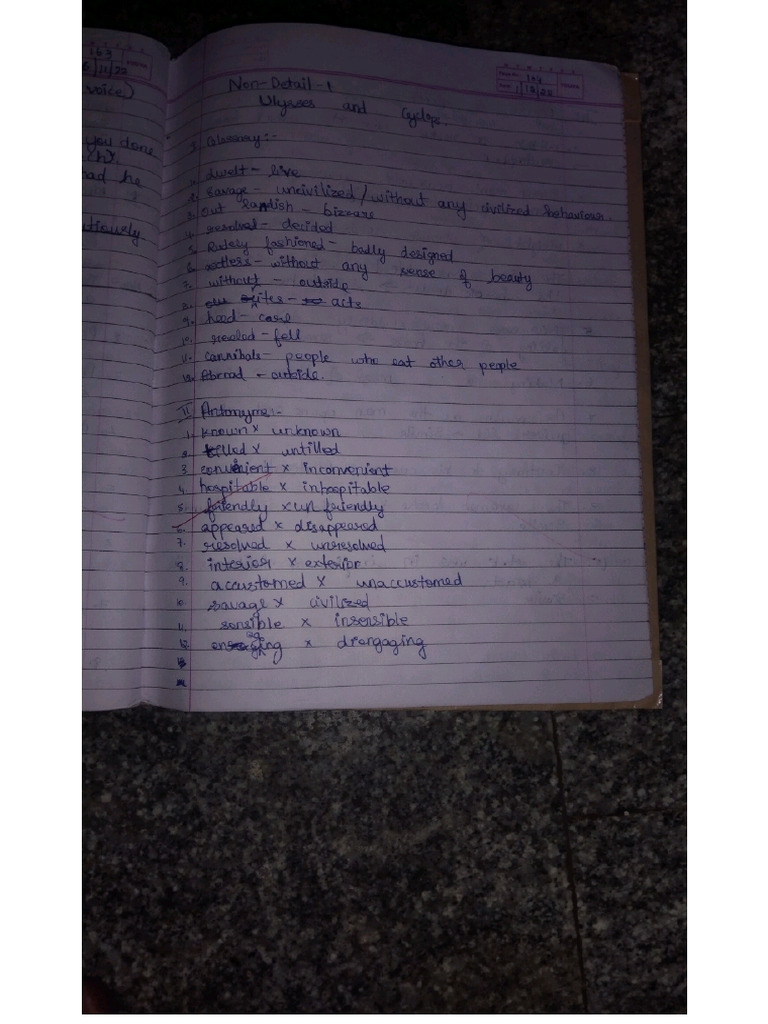 163
6/11/22
voice)
you done
(h).
had he
utiously
164
1/12/22
Non-Detail-1
Ulysses and Cyclops.
I Glossary:-
1. dwelt - live
2. Savage - uncivilized/without any civilized behaviour.
3. Out landish - bizcare
4. resolved - decided
5. Rudely fashioned - badly designed
6. - without any sense of beauty
7. without - outside
8. rites - acts
9. heed - care
10. - fell
11. Cannibals - people who eat other people
12. Abroad - outside.
II Antonyms:-
1. known x unknown
2. tilled x untilled
3. convenient x inconvenient
4. hospitable x inhospitable
5. friendly x un friendly
6. appeared x disappeared
7. resolved x unresolved
8. interior x exterior
9. accustomed x unaccustomed
10. savage x civilized
11. sensible x insensible
12. engaging x disengaging
13